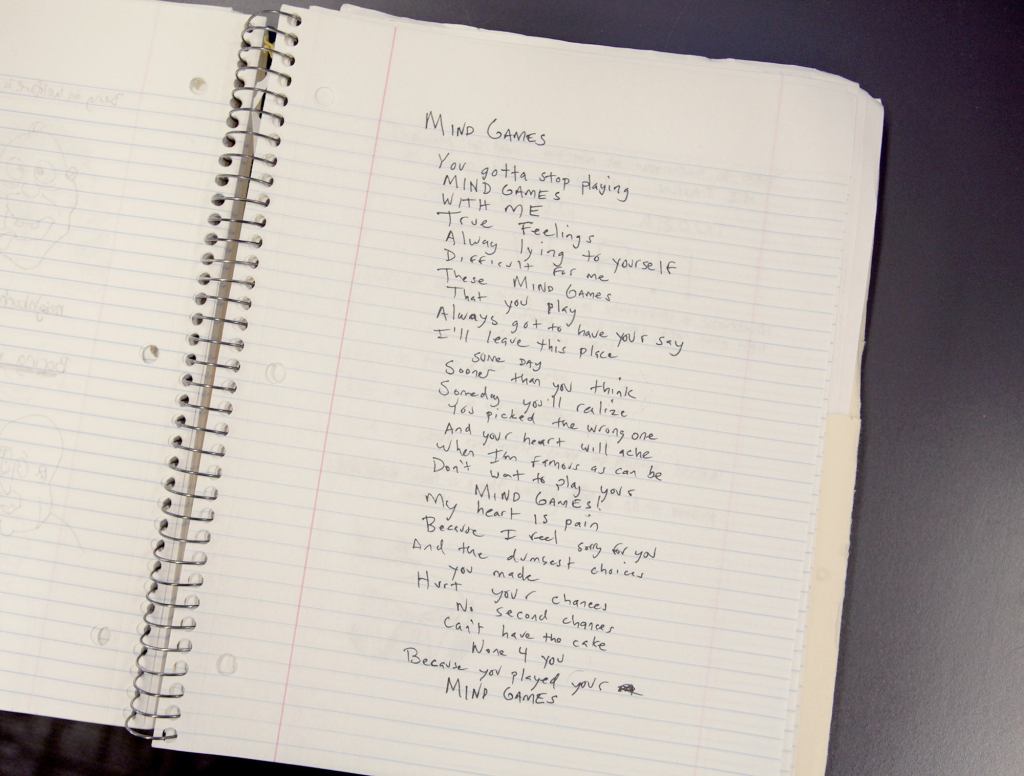 MIND GAMES
You gotta stop playing
MIND GAMES
WITH ME
True Feelings
Alway lying to yourself
Difficult for me
These MIND GAMES
That you play
Always got to have your say
I'll leave this place
SOME DAY
Sooner than you think
Someday you'll realize
You picked the wrong one
And your heart will ache
When I'm famous as can be
Don't want to play your
MIND GAMES!
My heart is pain
Because I feel sorry for you
And the dumbest choices
you made
Hurt your chances
No second chances
Can't have the cake
None 4 you
Because you played your
MIND GAMES